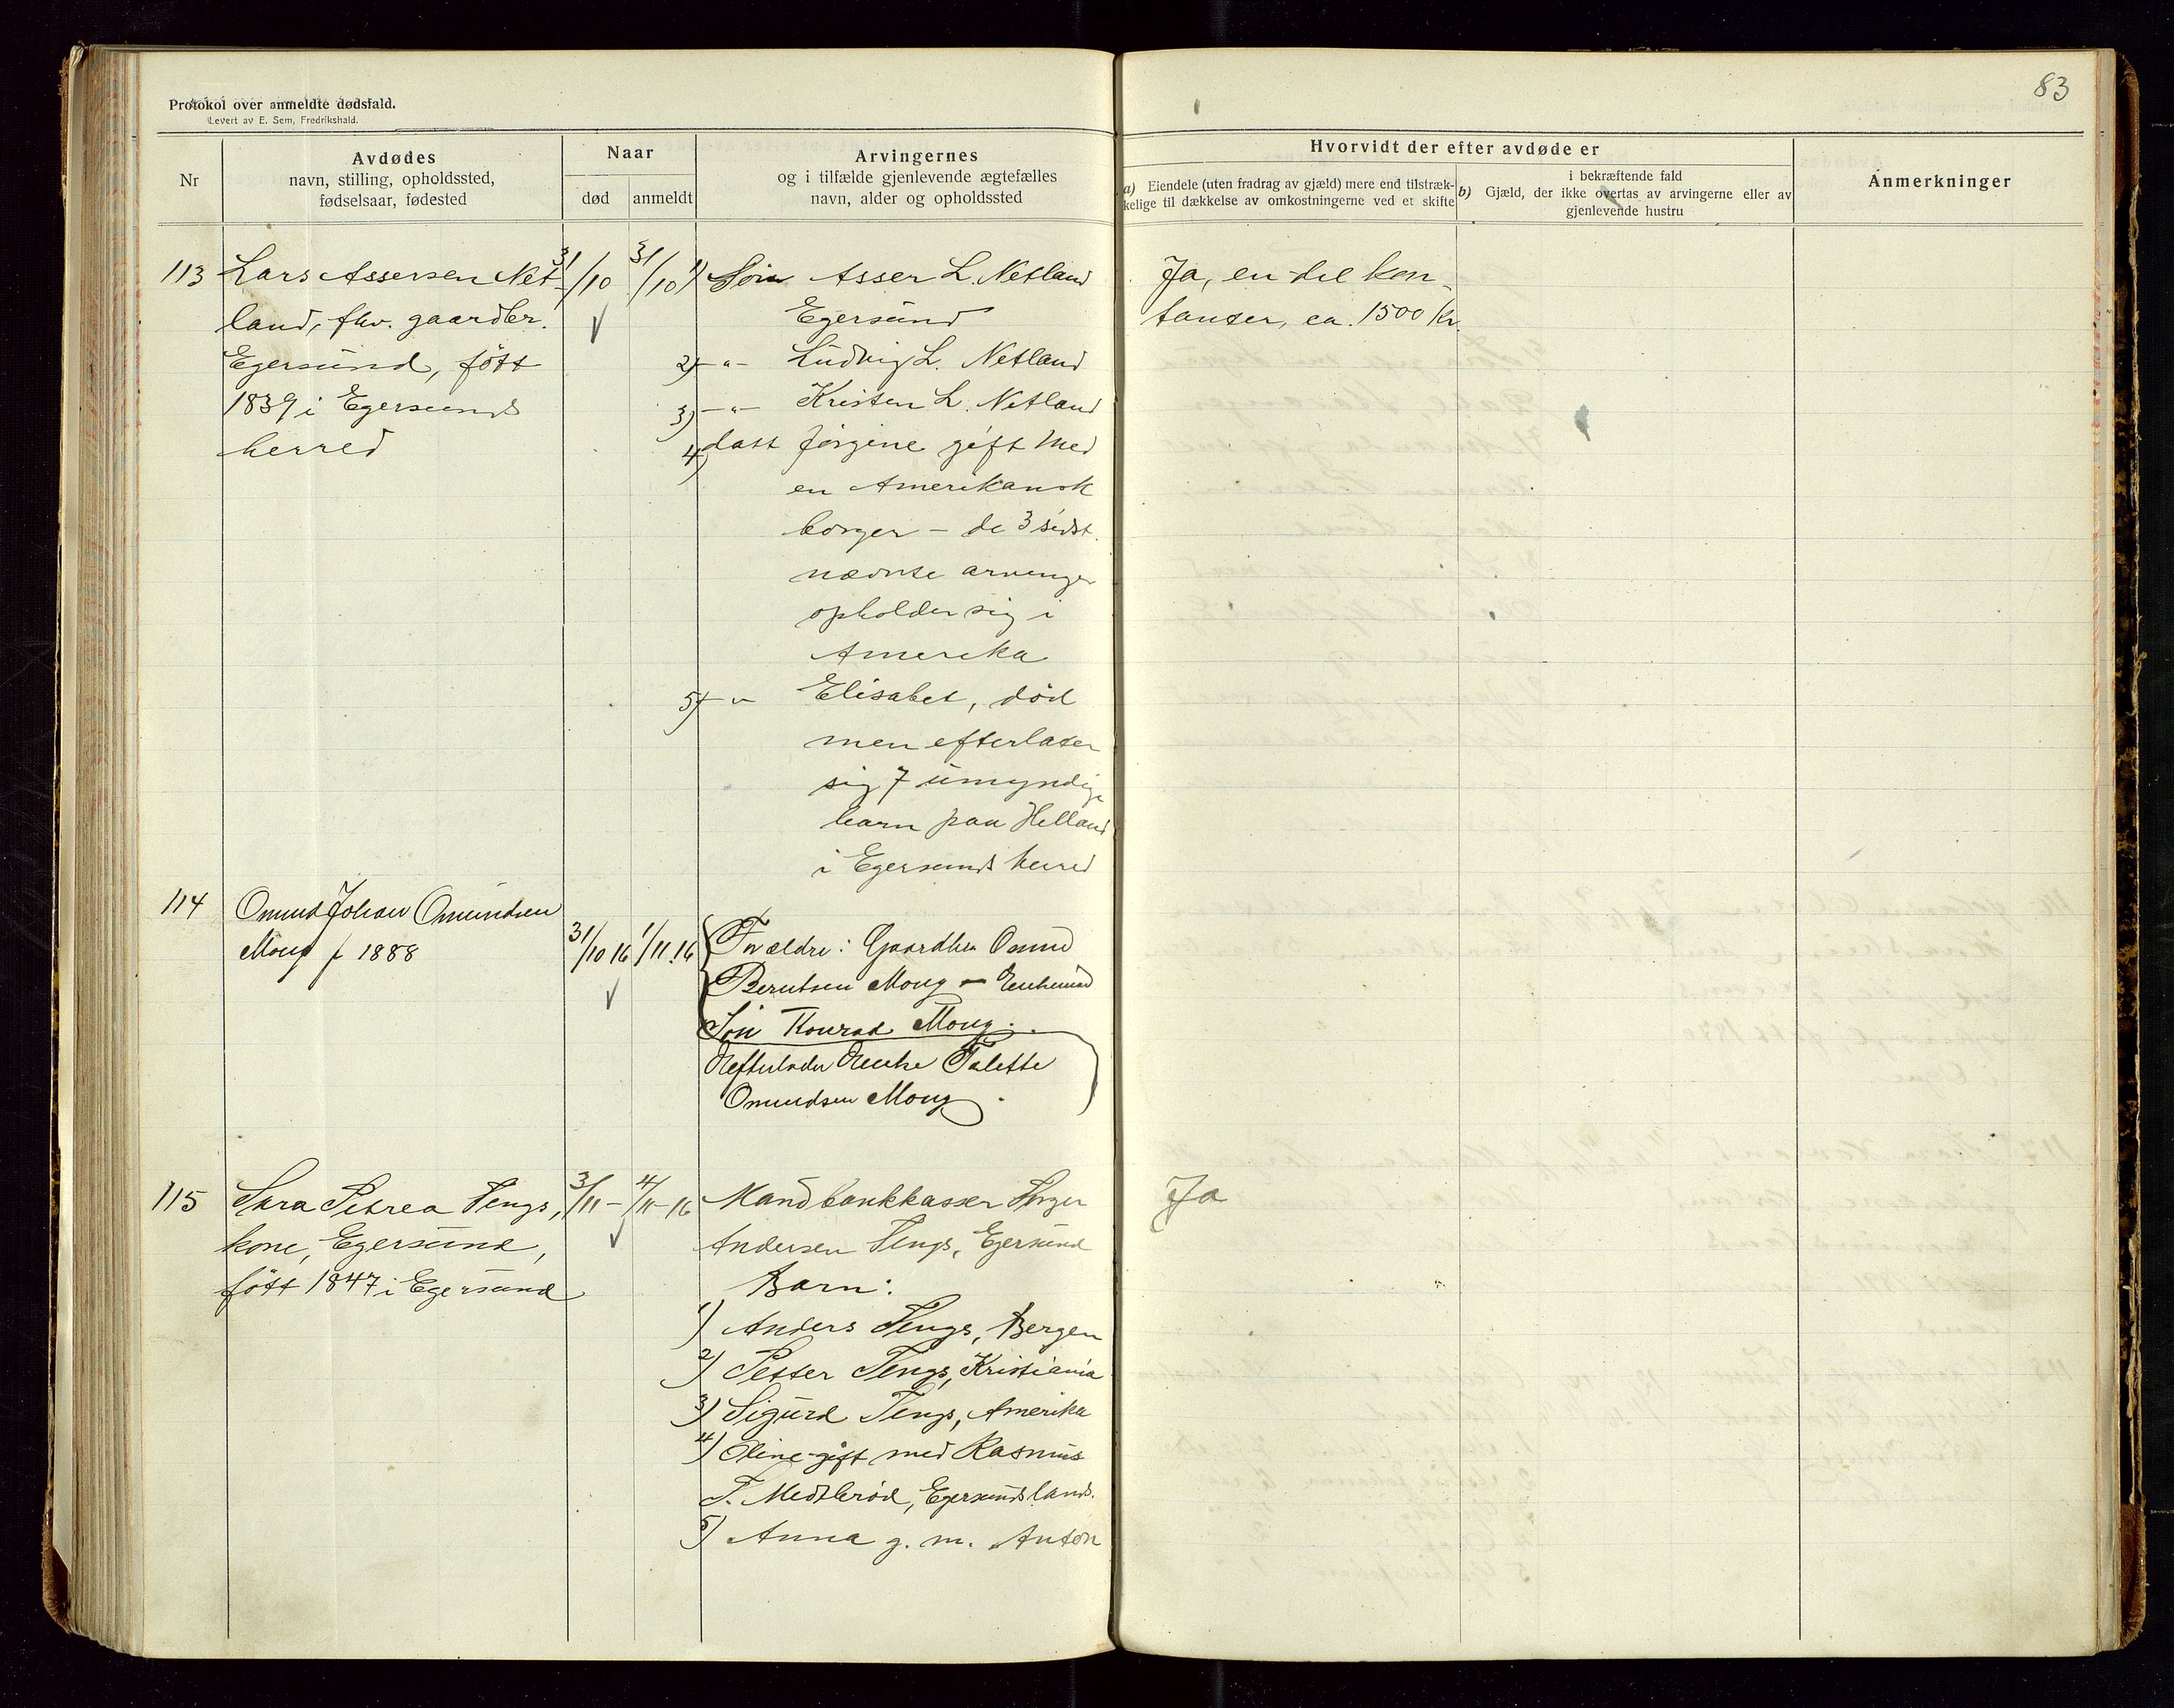 83
Protokol over anmeldte dødsfald.
Levert av E. Sem, Fredrikshald.
Nr
Avdødes
navn, stilling, opholdssted,
fødselsaar, fødested
Naar
død
anmeldt
Arvingernes
og i tilfælde gjenlevende ægtefælles
navn, alder og opholdssted
Hvorvidt der efter avdøde er
a) Eiendele (uten fradrag av gjæld) mere end tilstræk-
kelige til dækkelse av omkostningerne ved et skifte
i bekræftende fald
b) Gjæld, der ikke overtas av arvingerne eller av
gjenlevende hustru
Anmerkninger
113
Lars Assersen Net-
land, fhv. gaardbr.
Egersund, født
1839 i Egersunds
herred
31/10
31/10
1) Søn Asser L. Netland
Egersund
2) -"- Ludvig L. Netland
3) -"- Kristen L. Netland
4) datt Jørgine gift med
en Amerikansk
borger - de 3 sidst.
nævnte arvinger
opholder sig i
Amerika
5) -"- Elisabet, död
men efterlater
sig 7 umyndige
barn paa Helland
i Egersunds herred
Ja, en del kon-
tanter, ca. 1500 kr.
114
Omund Johan Omundsen
Moug f 1888
31/10 16
1/11.16
Forældre: Gaardbr Omund
Berntsen Moug - Enkemand
Søn Konrad Moug.
Efterlader Enke Talette
Omundsen Moug.
115
Sara Petrea Tengs,
kone, Egersund,
født 1847 i Egersund
3/11-
4/11-16
Mand bankkasser Torger
Andersen Tengs, Egersund
Barn:
1) Anders Tengs, Bergen
2) Petter Tengs, Kristiania
3) Sigurd Tengs, Amerika
4) Oline gift med Rasmus
T. Medbrød, Egersunds lands.
5) Anna g. m. Anton
Ja